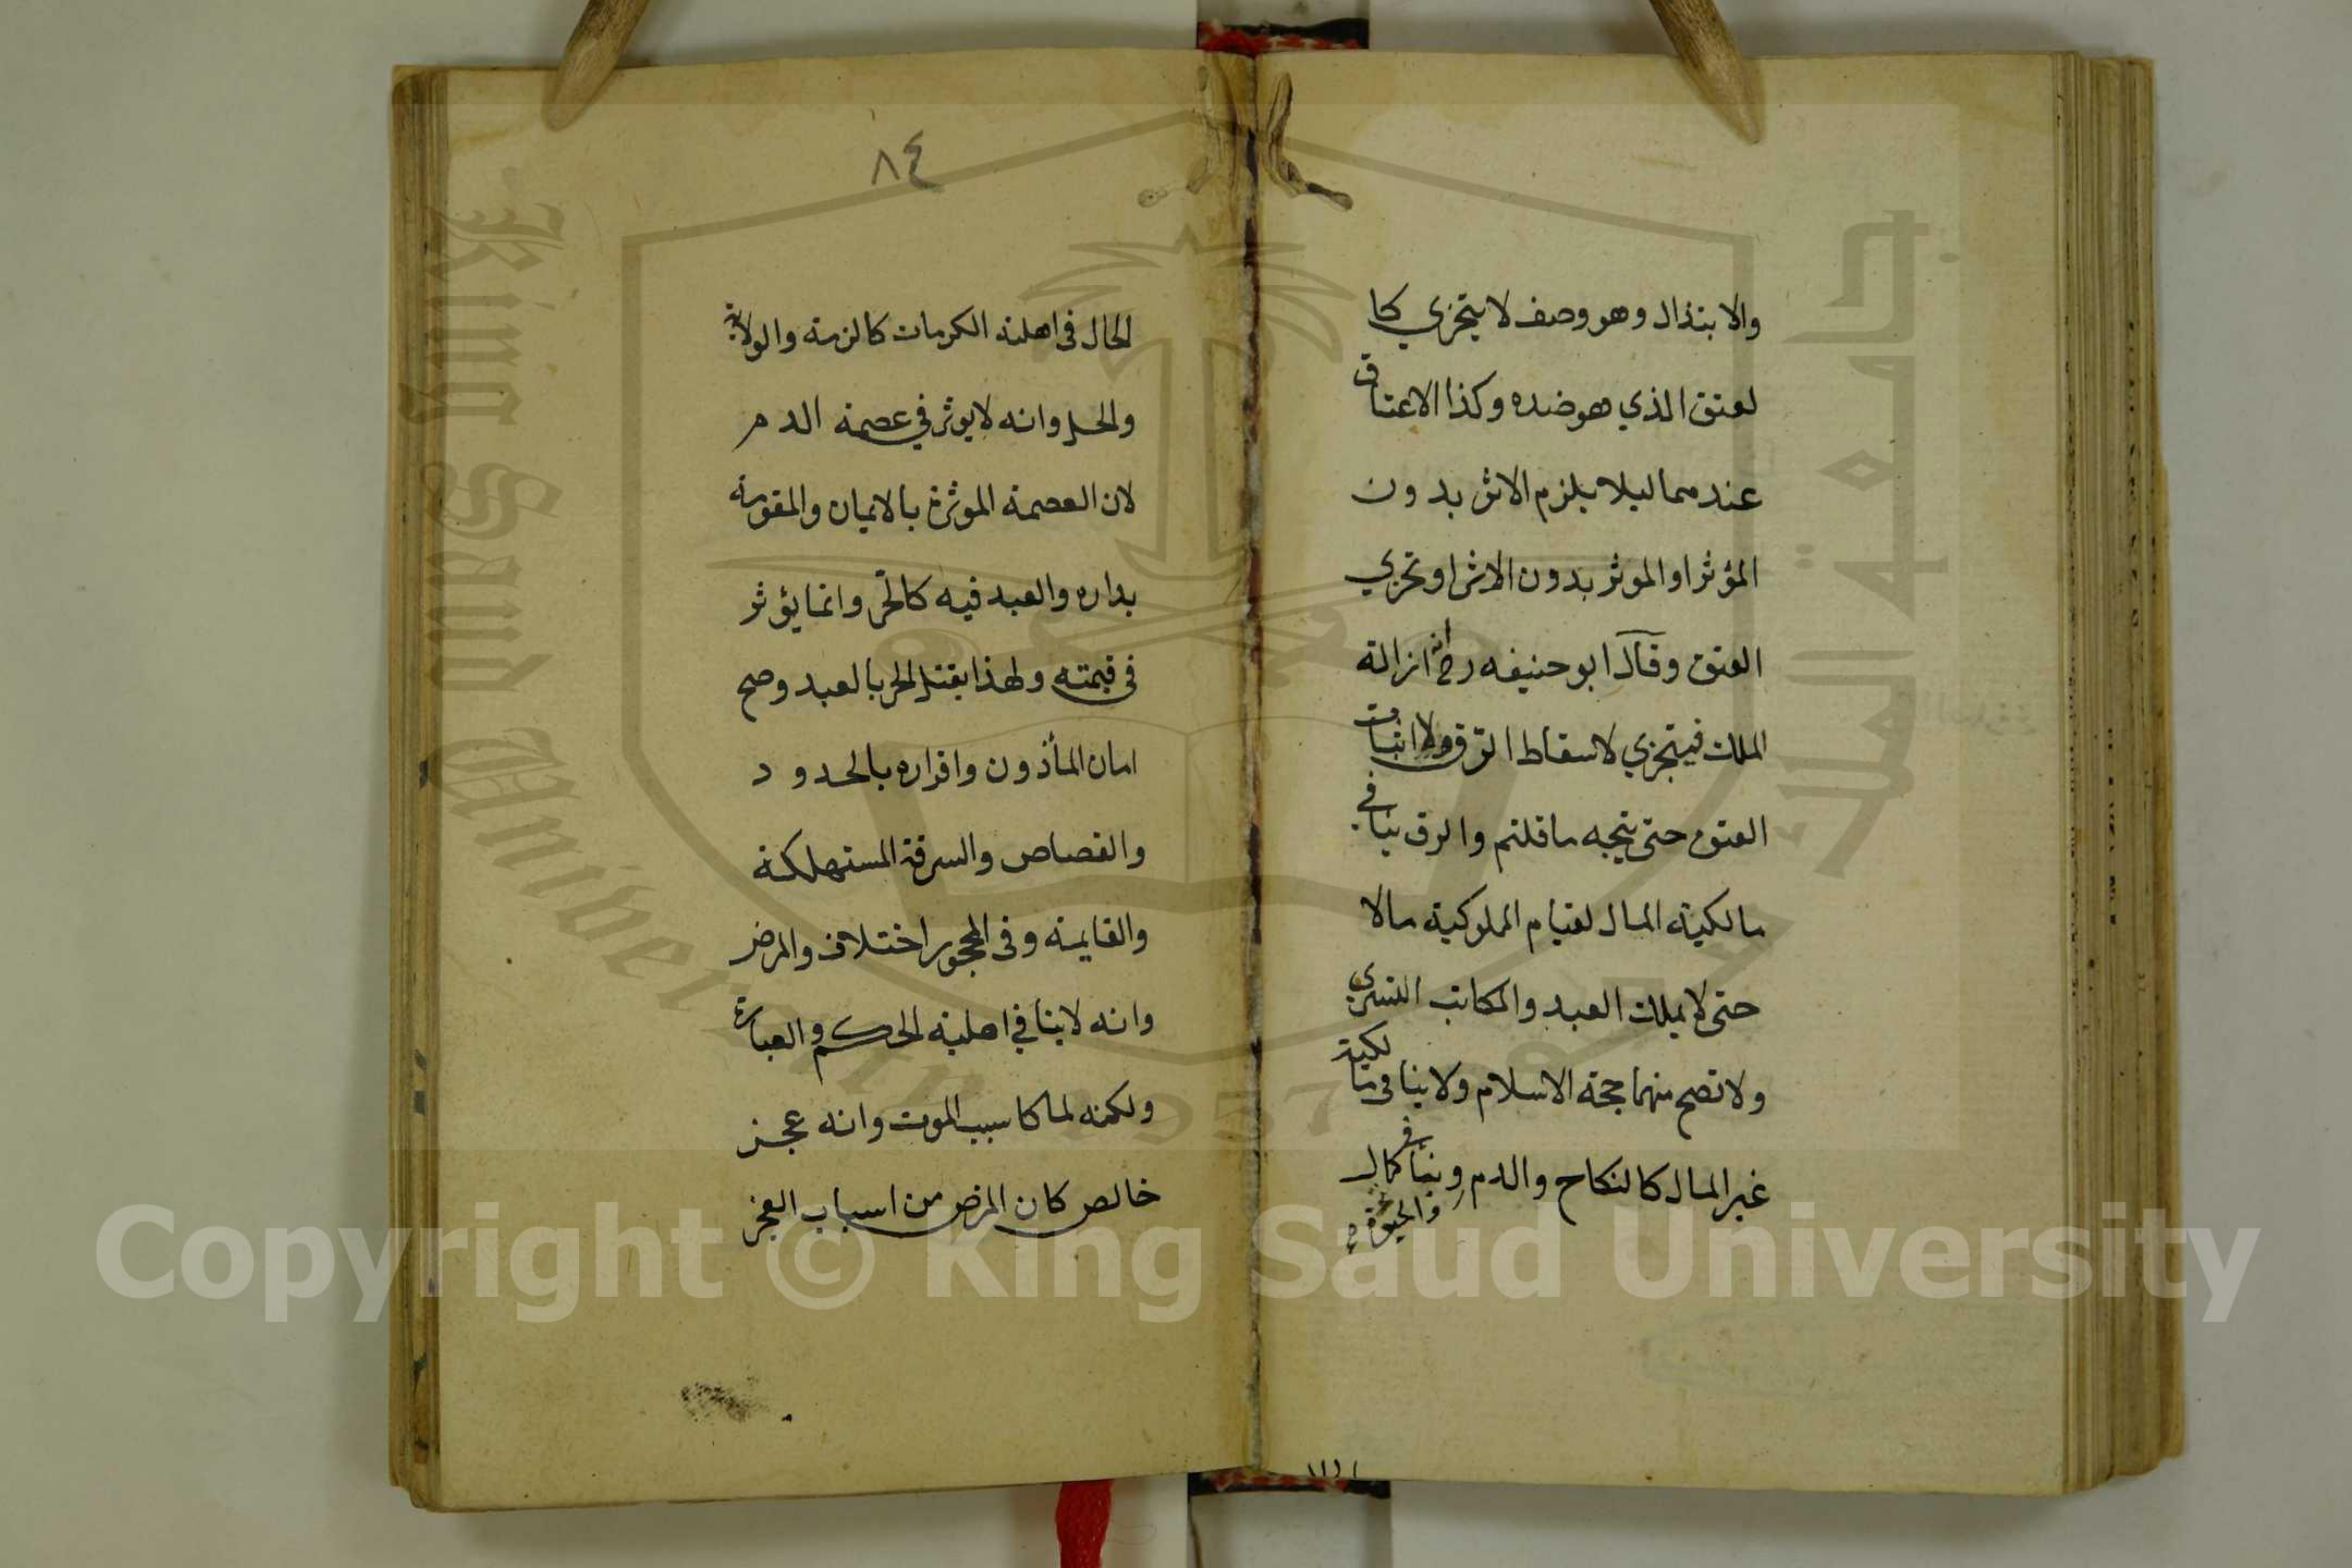 والابتذال وهو وصف لا يتجزي كا
لعتق الذي هو ضده وكذا الاعتاق
عندهما ليلا يلزم الاثر بدون
المؤثر او الموثر بدون الاثر او تجزي
العتق وقال ابو حنيفه رح انه ازالة
الملك فيتجزي لا سقاط الرق ولا اثبات
العتق حتى يتجه ما قلتم والرق ينافي
مالكية المال لقيام المملوكية مالا
حتى لا يملك العبد والمكاتب التسري
ولا تصح منهما حجة الاسلام ولا ينافى مالكية
غير المال كالنكاح والدم وينافي كمال
والحيوة
٨٤
الحال فى اهلية الكرمات كالذمة والولاية
والحل وانه لا يوثر في عصمة الدم
لان العصمة الموثرة بالايمان والمقومة
بداره والعبد فيه كالحر وانما يؤثر
فى قيمته ولهذا يقتل الحر بالعبد وصح
امان المأذون واقراره بالحدود
والقصاص والسرقة المستهلكة
والقايمة وفى المحجور اختلاف والمرض
وانه لا ينافي اهلية الحكم والعبارة
ولكنه لما كا سبب الموت وانه عجز
خالص كان المرض من اسباب العجز
King Saud University
جامعة الملك
1957
Copyright © King Saud University